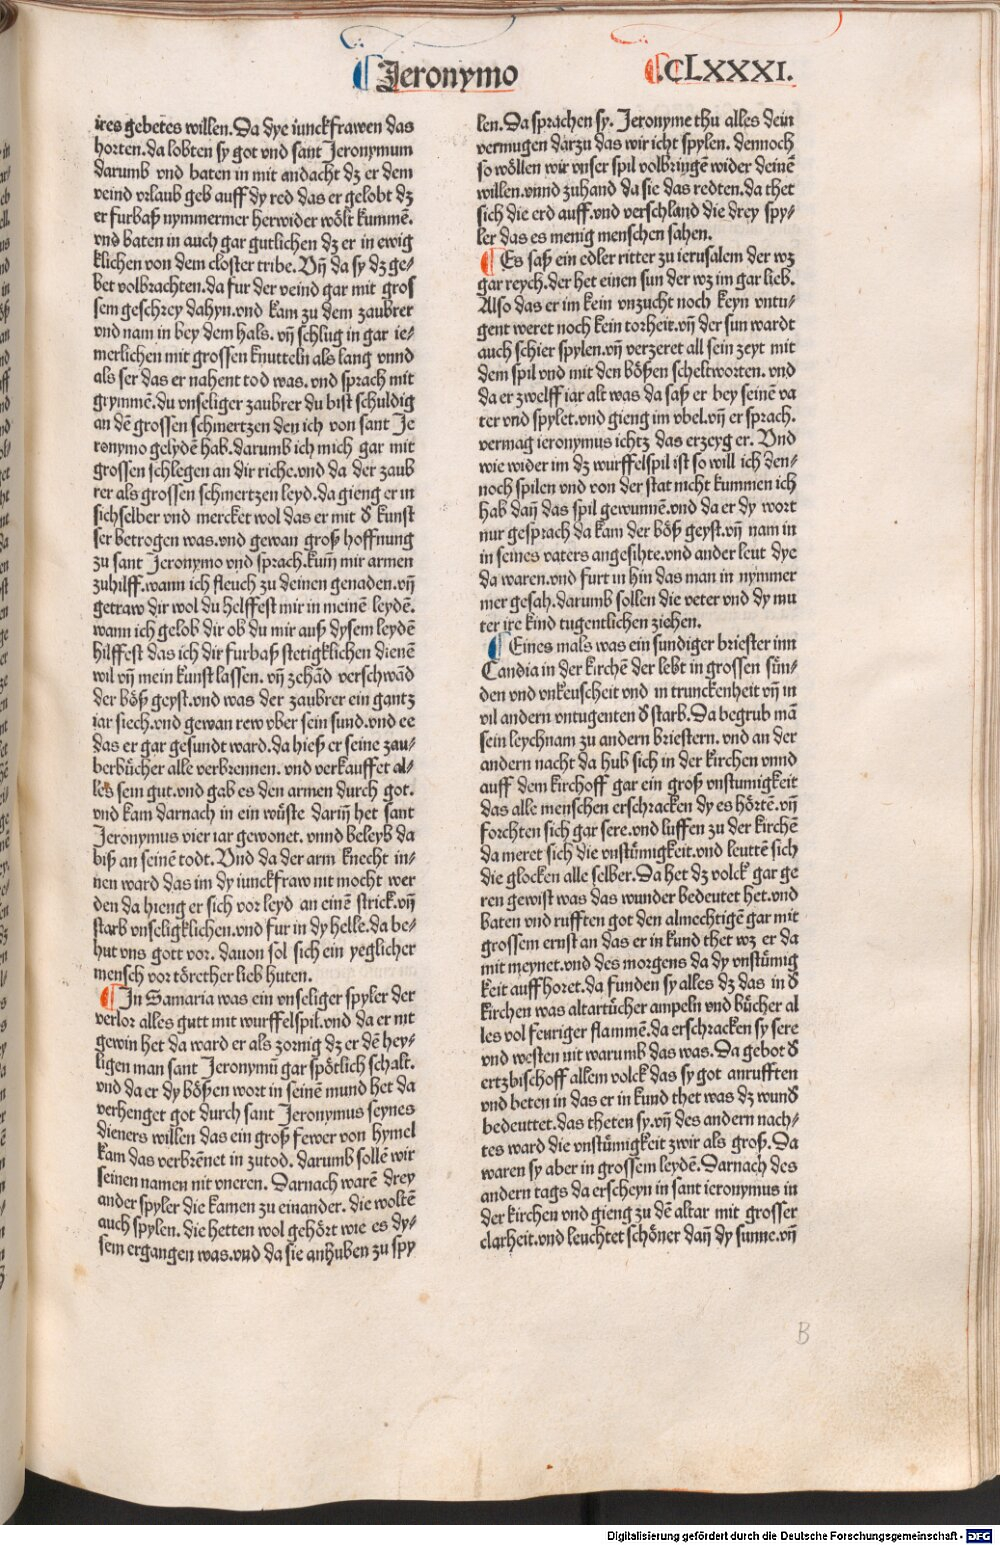 Jeronymo
.CLXXXI.
ires gebetes willen. Da dye iunckfrawen das
horten. da lobten sy got vnd sant Jeronymum
darumb vnd baten in mit andacht dz er dem
veind vrlaub geb auff dy red das er gelobt dz
er furbaß nymmermer herwider wölt kummē.
vnd baten in auch gar gutlichen dz er in ewig
klichen von dem closter tribe. Vñ da sy dz ge⸗
bet volbrachten. da fur der veind gar mit gros
sem geschrey dahyn. vnd kam zu dem zaubrer
vnd nam in bey dem hals. vñ schlug in gar ie⸗
merlichen mit grossen knutteln als lang vnnd
als ser das er nahent tod was. vnd sprach mit
grymmē. du vnseliger zaubrer du bist schuldig
an dē grossen schmertzen den ich von sant Je
ronymo gelydē hab. darumb ich mich gar mit
grossen schlegen an dir riche. vnd da der zaub
rer als grossen schmertzen leyd. da gieng er in
sichselber vnd mercket wol das er mit d̕ kunst
ser betrogen was. vnd gewan groß hoffnung
zu sant Jeronymo vnd sprach. kum̄ mir armen
zuhilff. wann ich fleuch zu deinen genaden. vñ
getraw dir wol du helffest mir in meinē leydē.
wann ich gelob dir ob du mir auß dysem leydē
hilffest das ich dir furbaß stetigklichen dienē
wil vñ mein kunst lassen. vñ zehād verschwād
der böß geyst. vnd was der zaubrer ein gantz
iar siech. vnd gewan rew vber sein sund. vnd ee
das er gar gesundt ward. da hieß er seine zau⸗
berbücher alle verbrennen. vnd verkauffet al⸗
les sein gut. vnd gab es den armen durch got.
vnd kam darnach in ein wüste dariñ het sant
Jeronymus vier iar gewonet. vnnd beleyb da
biß an seinē todt. Vnd da der arm knecht in⸗
nen ward das im dy iunckfraw nit mocht wer
den da hieng er sich vor leyd an einē strick. vñ
starb vnseligklichen. vnd fur in dy helle. da be⸗
hut vns gott vor. dauon sol sich ein yeglicher
mensch vor törether lieb huten.
In Samaria was ein vnseliger spyler der
verlor alles gutt mit wurffelspil. vnd da er nit
gewin het da ward er als zornig dz er dē hey⸗
ligen man sant Jeronymū gar spötlich schalt.
vnd da er dy bößen wort in seinē mund het da
verhenget got durch sant Jeronymus seynes
dieners willen das ein groß fewer von hymel
kam das verbrēnet in zutod. darumb sollē wir
seinen namen nit vneren. Darnach warē drey
ander spyler die kamen zu einander. die woltē
auch spylen. die hetten wol gehört wie es dy⸗
sem ergangen was. vnd da sie anhuben zu spy
len. Da sprachen sy. Jeronyme thu alles dein
vermugen darzu das wir icht spylen. dennoch
so wöllen wir vnser spil volbringē wider deinē
willen. vnnd zuhand da sie das redten. da thet
sich die erd auff. vnd verschland die drey spy⸗
ler das es menig menschen sahen.
Es saß ein edler ritter zu ierusalem der wz
gar reych. der het einen sun der wz im gar lieb.
Also das er im kein vnzucht noch keyn vntu⸗
gent weret noch kein torheit. vñ der sun wardt
auch schier spylen. vñ verzeret all sein zeyt mit
dem spil vnd mit den bößen scheltworten. vnd
da er zwelff iar alt was da saß er bey seinē va
ter vnd spylet. vnd gieng im vbel. vñ er sprach.
vermag ieronymus ichtz das erzeyg er. Vnd
wie wider im dz wurffelspil ist so will ich den⸗
noch spilen vnd von der stat nicht kummen ich
hab dañ das spil gewunnē. vnd da er dy wort
nur gesprach da kam der böß geyst. vñ nam in
in seines vaters angesihte. vnd ander leut dye
da waren. vnd furt in hin das man in nymmer
mer gesah. darumb sollen die veter vnd dy mu
ter ire kind tugentlichen ziehen.
Eines mals was ein sundiger briester inn
Candia in der kirchē der lebt in grossen sün⸗
den vnd vnkeuscheit vnd in trunckenheit vñ in
vil andern vntugenten d̕ starb. Da begrub mā
sein leychnam zu andern briestern. vnd an der
andern nacht da hub sich in der kirchen vnnd
auff dem kirchoff gar ein groß vnstumigkeit
das alle menschen erschracken dy es hörtē. vñ
forchten sich gar sere. vnd luffen zu der kirchē
da meret sich die vnstümigkeit. vnd leuttē sich
die glocken alle selber. Da het dz volck gar ge
ren gewist was das wunder bedeutet het. vnd
baten vnd rufften got den almechtigē gar mit
grossem ernst an das er in kund thet wz er da
mit meynet. vnd des morgens da dy vnstümig
keit auffhoret. da funden sy alles dz das in d̕
kirchen was altartücher ampeln vnd bücher al
les vol feuriger flammē. da erschracken sy sere
vnd westen nit warumb das was. Da gebot d̕
ertzbischoff allem volck das sy got anrufften
vnd beten in das er in kund thet was dz wund̕
bedeuttet. das theten sy. vñ des andern nach⸗
tes ward die vnstümigkeit zwir als groß. Da
waren sy aber in grossem leydē. Darnach des
andern tags da erscheyn in sant ieronymus in
der kirchen vnd gieng zu dē altar mit grosser
clarheit. vnd leuchtet schöner dañ dy sunne. vñ
B
Digitalisierung gefördert durch die Deutsche Forschungsgemeinschaft - DFG